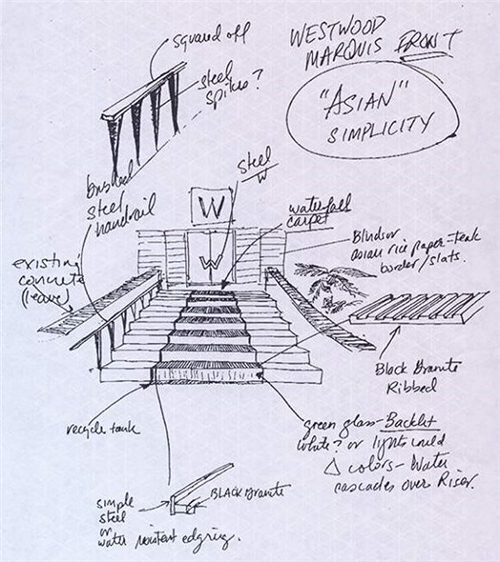 WESTWOOD
MARQUIS FRONT
"ASIAN"
SIMPLICITY
squared off
steel
spikes?
steel
W
brushed
steel
handrail
W
W
waterfall
carpet
existing
concrete
(leave)
asian rice paper-teak
border/slats.
Black Granite
Ribbed
recycle tank
green glass-Backlit
white? or lights could
Δ colors-Water
cascades over Riser.
simple
steel
or
water resistent edging.
BLACK Granite